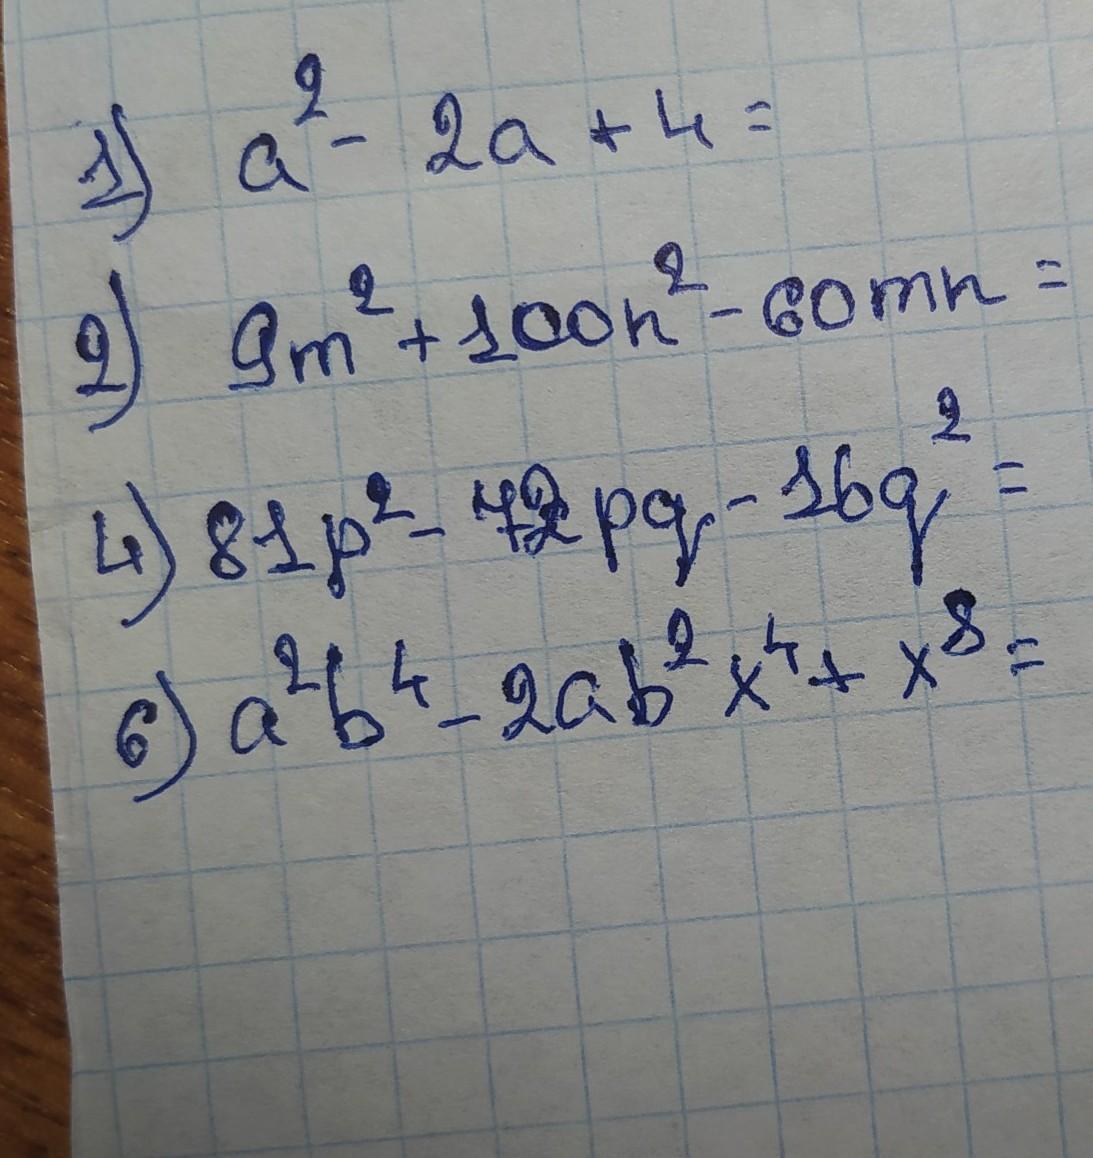 1) a² - 2a + 4 =
2) 9m² + 100n² - 60mn =
4) 81p² - 72pq - 16q² =
6) a²b⁴ - 2ab²x⁴ + x⁸ =